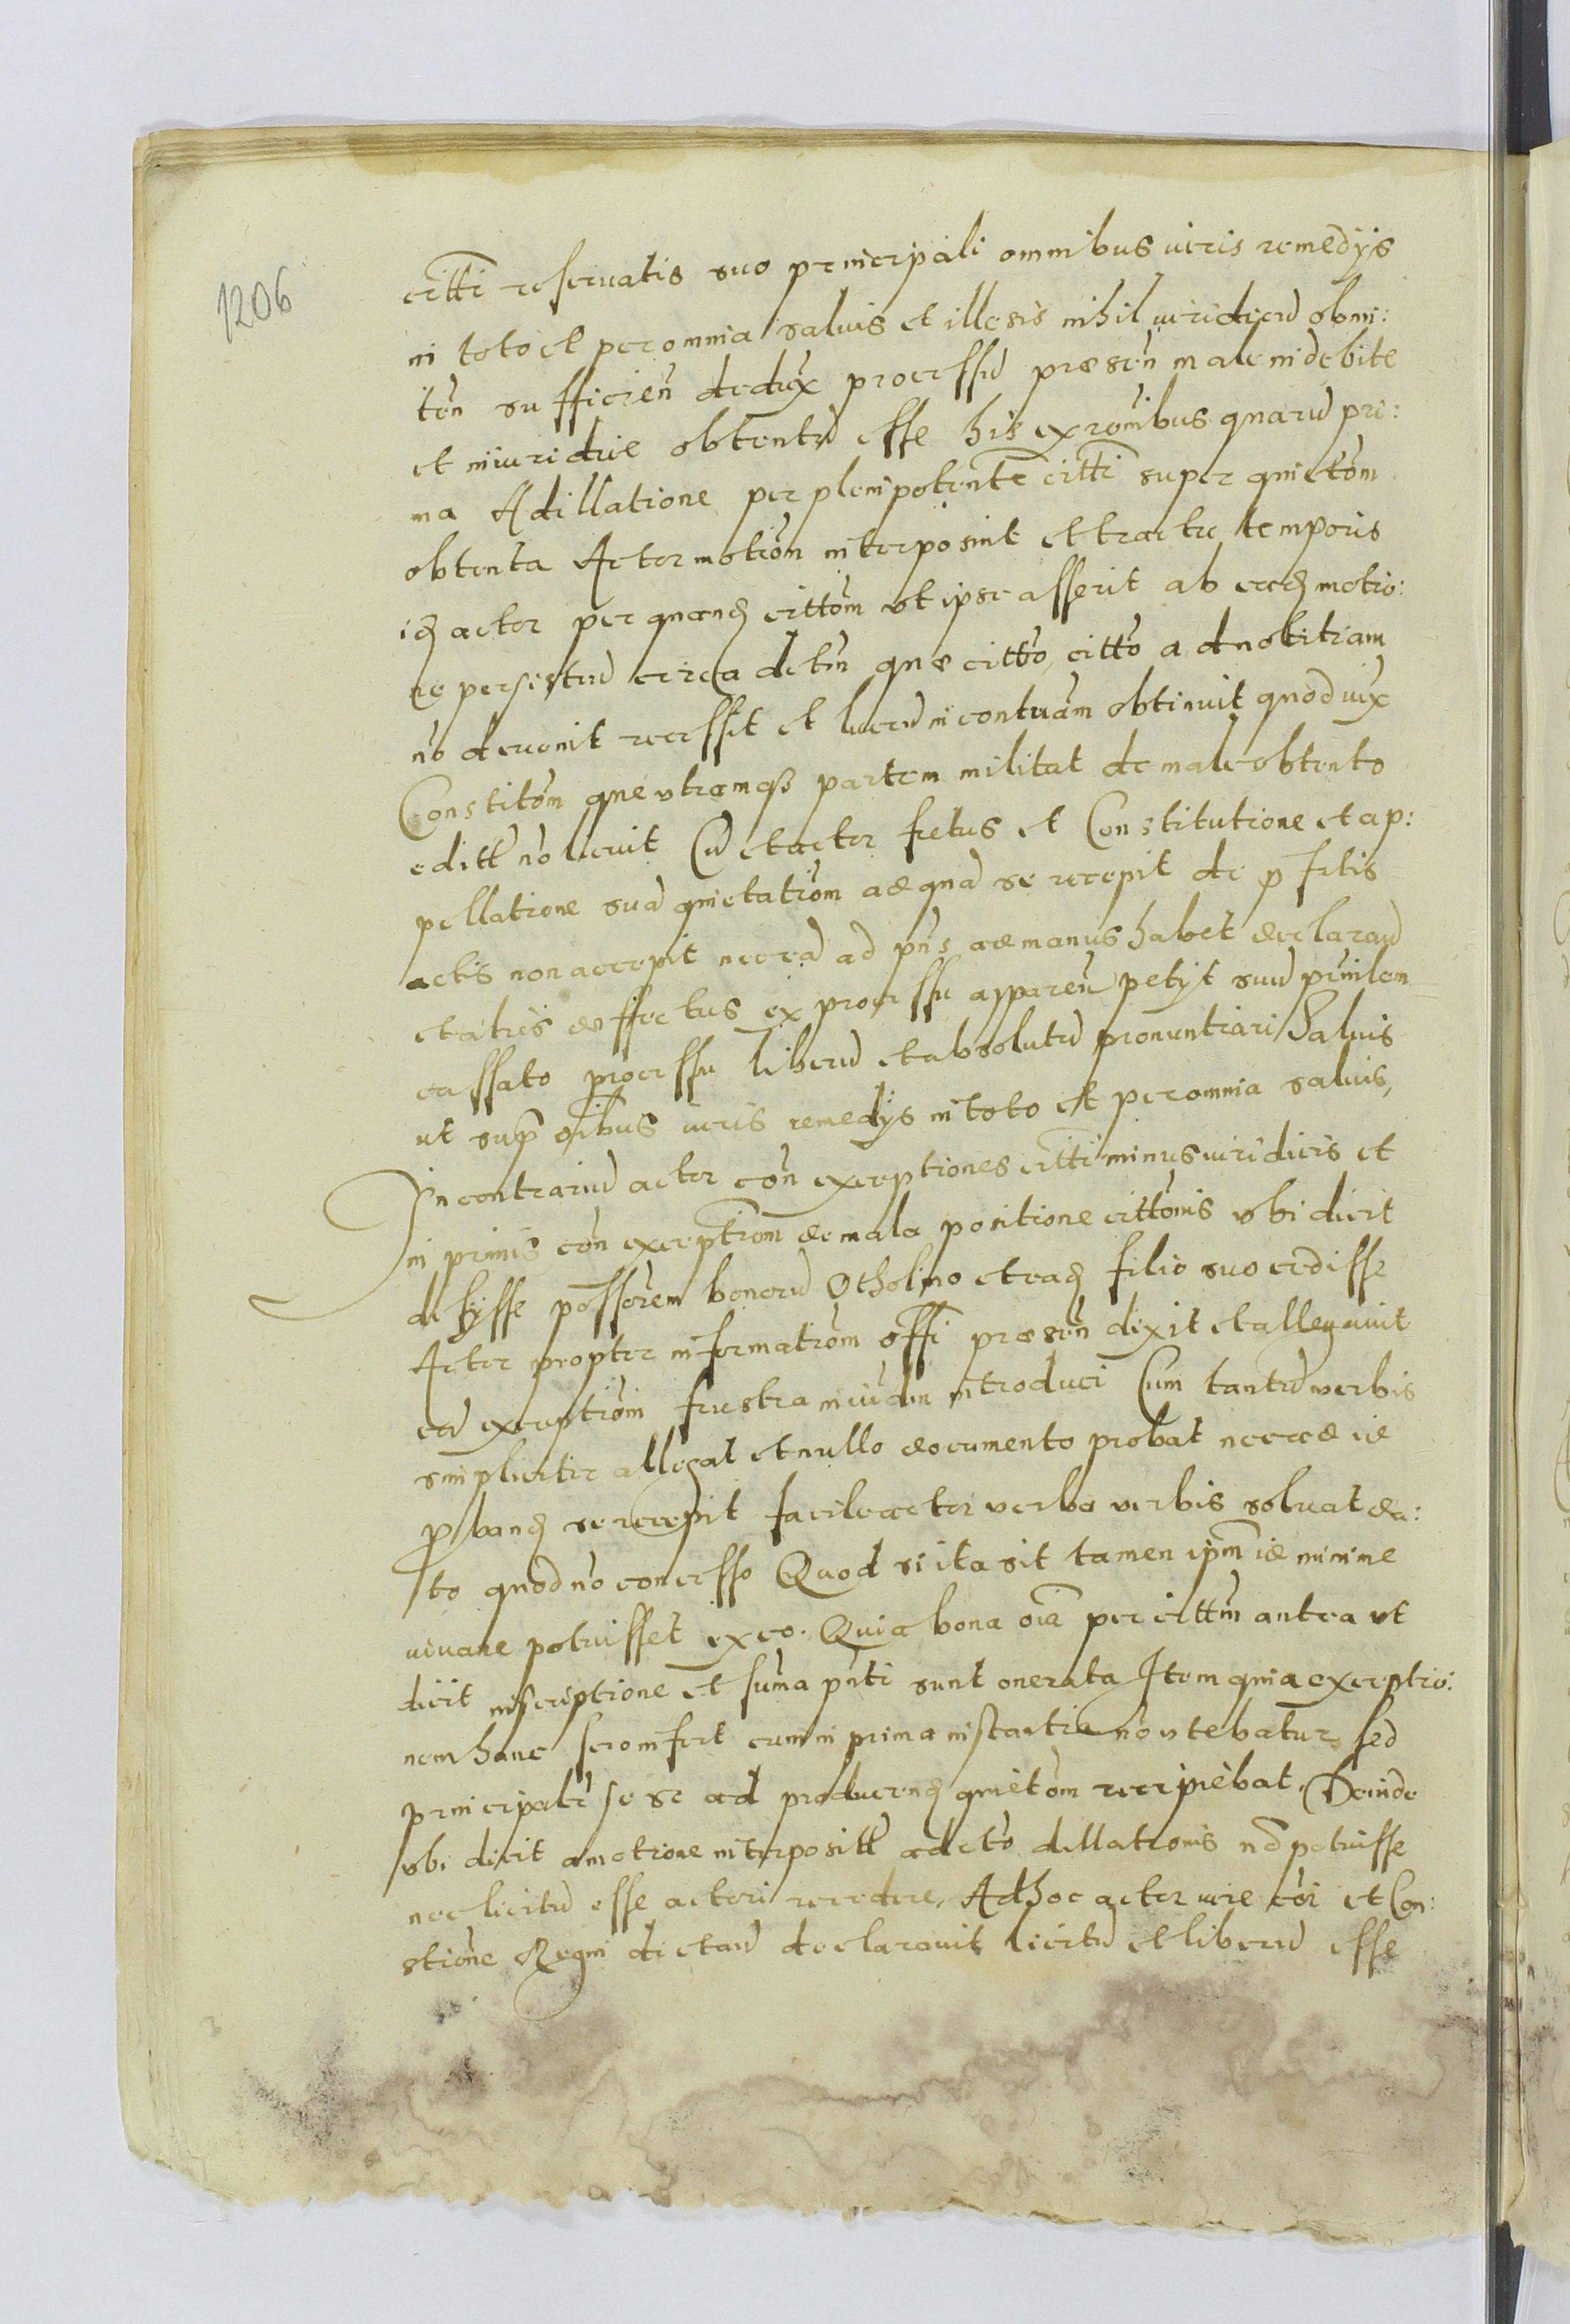 1206
citti reseruatis suo principali omnibus iuris remedys
in toto et per omnia saluis et illesis nihil iuridicu obmi:
ten sufficien dedux processu praesen male indebite
et iniuridice obtentu esse his ex rombus quaru pri:
ma Adillatione per plenipotente citti super quietom
obtenta Actor motion interposuit et tractu temporis
ide actor per quande cittom ut ipse asserit ab eade motio:
ne persistend circa detin quae citto, citto ad notitiam
no deuenit recessit et lucru in contuam obtinuit quod uix
Constitom que utramque partem militat de male obtento
editt no licuit Cu et actor fretus et Constitutione et ap:
pellatione sua quietation ad qua se recepit de profitis
actis non accepit nec ea ad pns ad manus habet declarand
et alys deffectus ex processu apparen petyt suu prinlem
cassato processu liberu et absolutu pronuntiari Saluis
ut sup oibus iuris remedys in toto et per omnia saluis,
In contrariu actor con exceptiones citti minus iuridicis et
in primis con exception de mala positione cittonis ubi dicit
desysse possorem bonoru Otholino et eade filio suo cedisse
Actor propter information offi praesen dixit et allegauit
ea exception frustra in iudm introduci Cum tantu uerbis
simpliciter allegat et nullo documento probat nec ad id
probande se recepit facile actor uerba uerbis soluat da:
to quod no concesso Quod si ita sit tamen ipm id minime
iuuare potuisset ex eo. Quia bona oia per cittm antea ut
dicit inscriptione et suma pnti sunt onerata Item quia exceptio:
nem hanc sero infert cum in prima instantia no utebatur sed
principalr se se ad producende quietom recipiebat. Deinde
ubi dicit a motione interpositt ad cto dillationis no potuisse
nec licitu esse actori recedere. Ad hoc actor iure coi et Con:
stione Regni dictau declarauit licitu et liberu esse